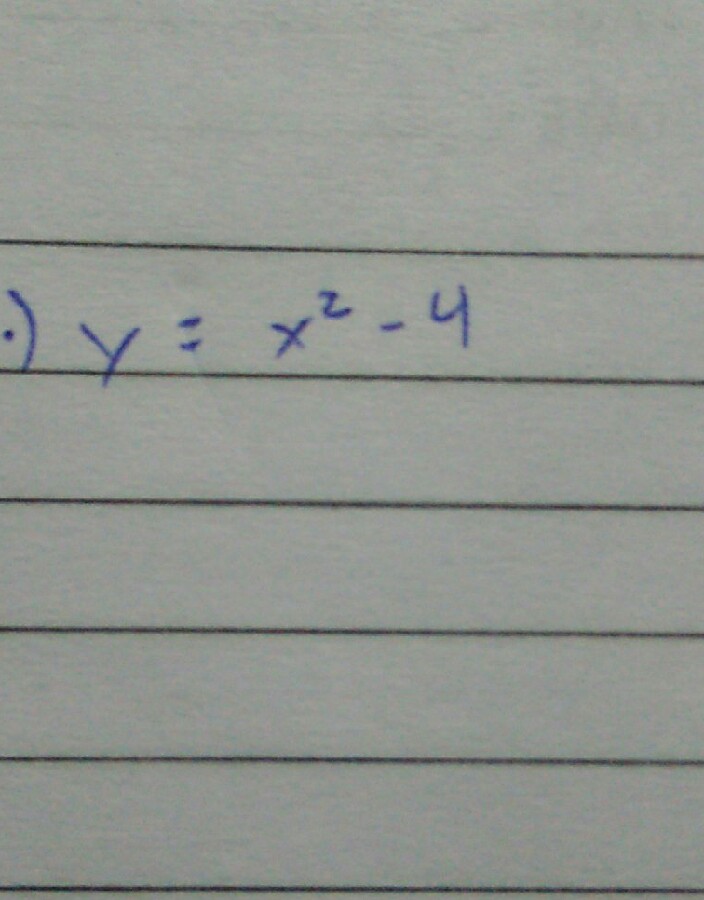 .) y = x² - 4